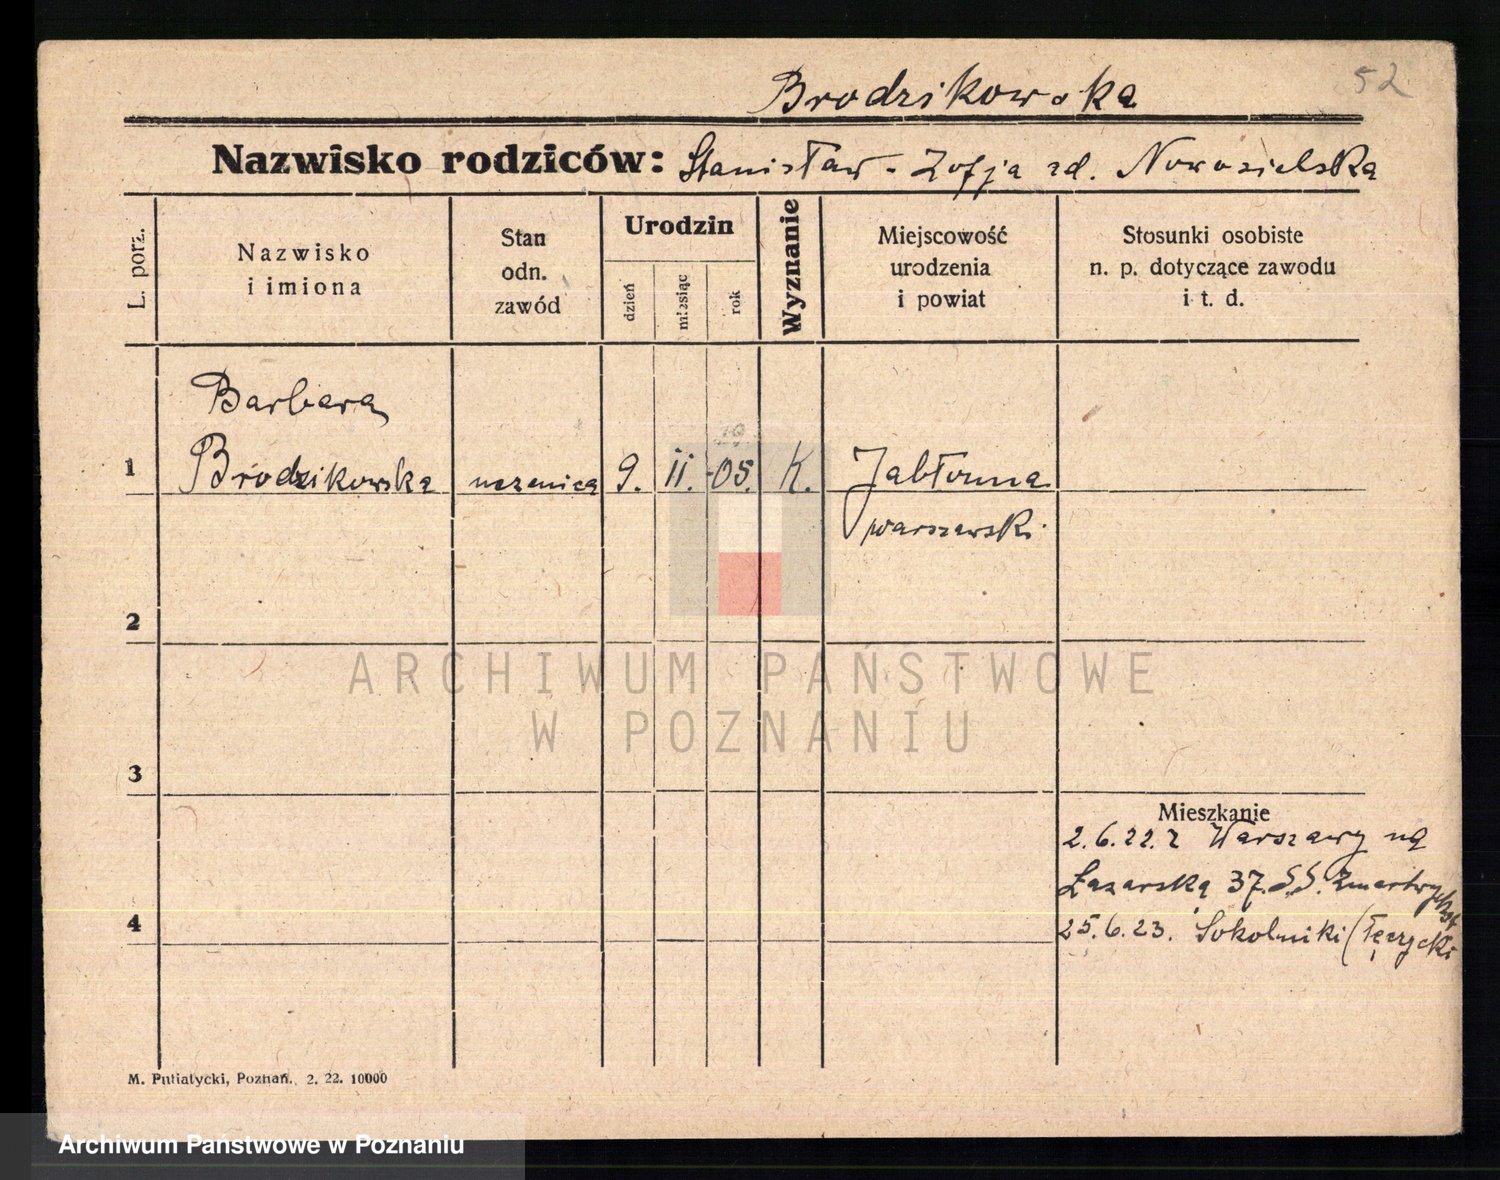 Brodzikowska
52
Nazwisko rodziców: Stanisław - Zofja zd. Nowosielska
L. porz.
Nazwisko
i imiona
Stan
odn.
zawód
Urodzin
dzień
miesiąc
rok
Wyznanie
Miejscowość
urodzenia
i powiat
Stosunki osobiste
n. p. dotyczące zawodu
i t. d.
Barbara
19
1 Brodzikowska uczenica 9. II. -05. K. Jabłonna
warszawski
2
ARCHIWUM PAŃSTWOWE
W POZNANIU
3
Mieszkanie
2.6.22. z Warszawy na
Łazarską 37. S.S. Zmartwychst
4
25.6.23. Sokolniki (łęczycki
M. Putiatycki, Poznań. 2. 22. 10000
Archiwum Państwowe w Poznaniu